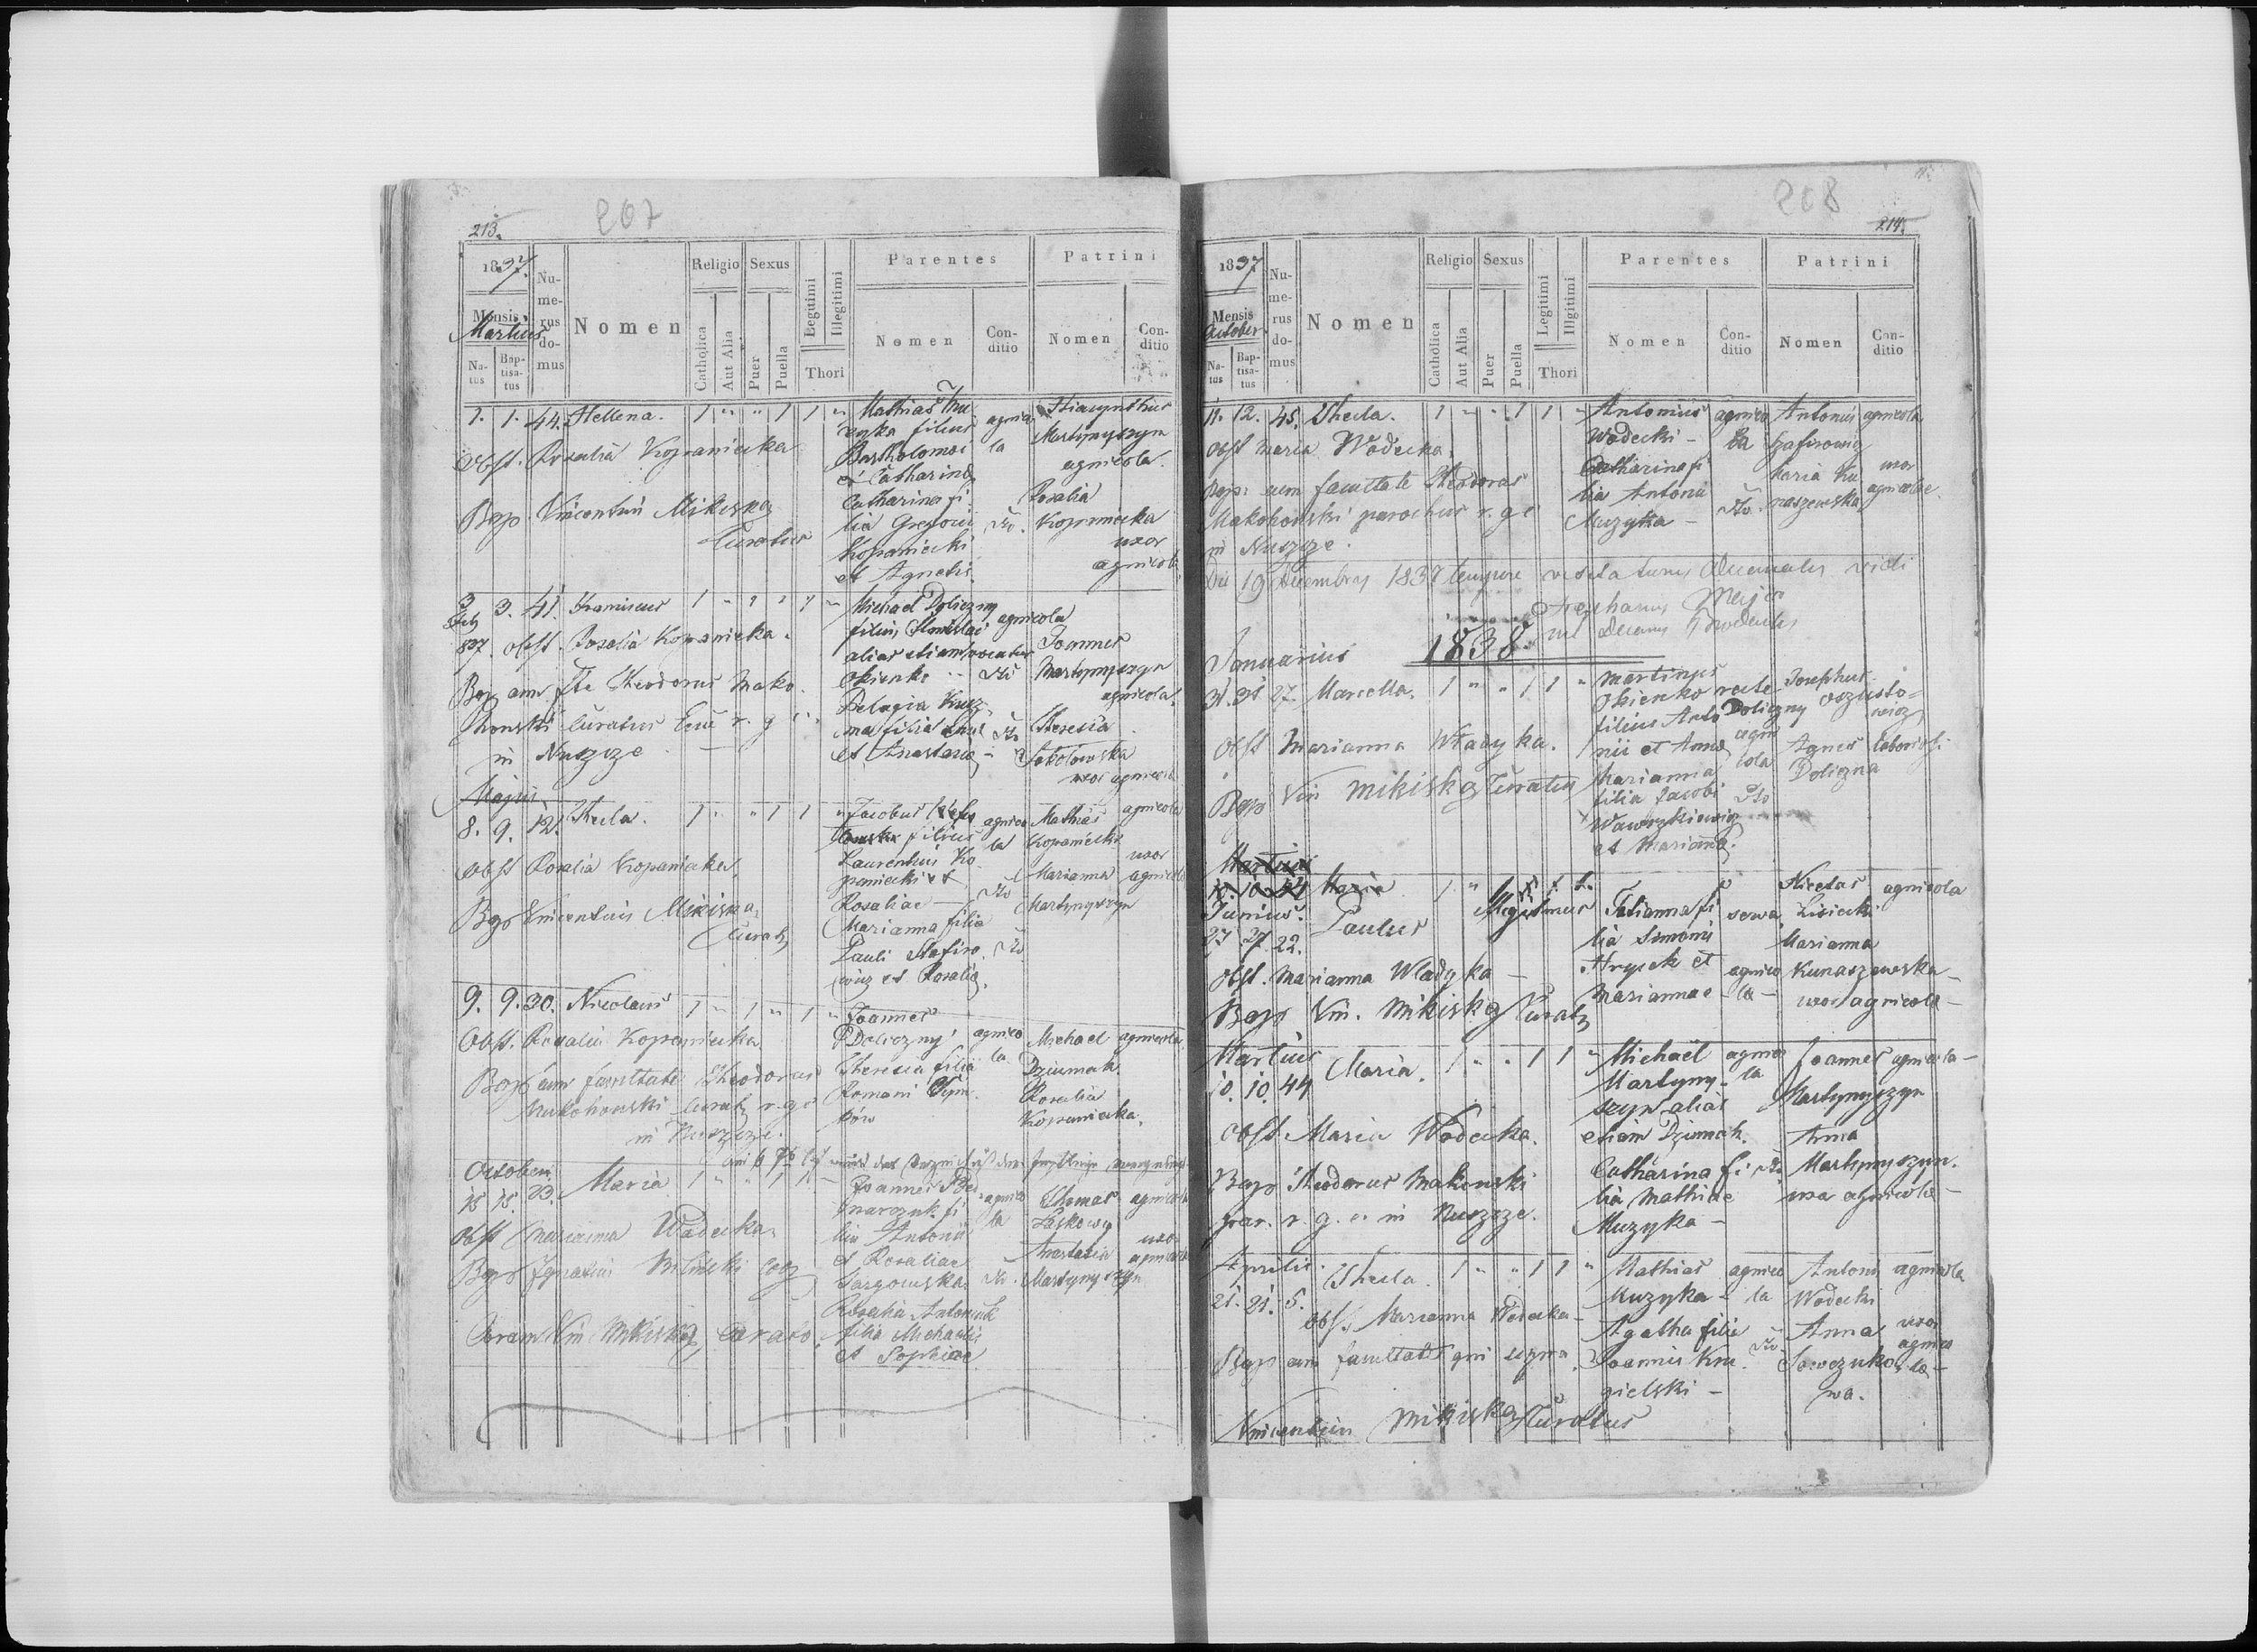 207
213.
1837.
Mensis
Martius
Natus
Baptisatus
Numerus domus
Nomen
Religio
Catholica
Aut Alia
Sexus
Puer
Puella
Legitimi
Illegitimi
Thori
Parentes
Nomen
Conditio
Patrini
Nomen
Conditio
1. 1. 44. Hellena. 1 " " 1 1 "
Obst. Rosalia Kopaniecka
Bap. Vincentius Mikiska
Curatus
Mathias Mu
zyka filius
Bartholomei
et Catharinae
Catharina fi
lia Gregorii
Kopaniecki
et Agnetis.
agrico
la
Hiacynthus
Martynyszyn
agricola.
Rosalia
Kopaniecka
uxor
agricola
3 3. 41. Franciscus 1 "
Feb
837. obst. Rosalia Kopaniecka.
Bap cum fte Theodorus Mako
honski Curatus r. g.
in Nuszcze
Michael Doliczny
filius Stanislai
alias etiam vocatus
Okienko
Pelagia Kuz
ma filia
et Anastasiae
agricola
Joannes
Martynyszyn
agricola.
Theresia
Sokolowska
uxor agricola
Majus
8. 9. 12. Thecla. 1 " " 1 1
obst Rosalia Kopaniecka,
Bap Vincentius Mikiska
Curatus
Jacobus
filius
Laurentius Ko
paniecki et
Rosaliae
Marianna filia
Pauli Szafiro
wicz et Rosaliae.
agrico
la
Mathias
Kopaniecki
Marianna
Martynyszyn
agricola
uxor
agricola
9. 9. 30. Nicolaus 1 " 1 " 1 "
Obst. Rosalia Kopaniecka
Bap cum facultate Theodorus
Makohonski Curat r. g. c
in Nuszcze.
Joannes
Doliczny
Theresia filia
Romani Sym
ków
agrico
la
Michael agricola
Dziumak
Rosalia
Kopaniecka.
October
15 15. 23. Maria
obst Marianna Wodecka
Bap Ignatius Bilinski Coop
Coram Vin Mikiska Curato
Joannes
marczuk fi
lius Antonii
et Rosaliae
Rosalia Antoniuk
filia Michaelis
et Sophiae
agrico
la
Thomas agricola
Laskowy
Anastasia uxor
Martynyszyn agricola
208
214.
1837
Mensis
October
Natus
Baptisatus
Numerus domus
Nomen
Religio
Catholica
Aut Alia
Sexus
Puer
Puella
Legitimi
Illgitimi
Thori
Parentes
Nomen
Conditio
Patrini
Nomen
Conditio
11. 12. 45. Thecla. 1 " " 1 1 "
Obst Maria Wodecka.
Bap: cum facultate Theodorus
Makohonski parochus r. g. c
in Nuszcze.
Antonius
Wodecki -
Catharina fi
lia Antonii
Muzyka -
agrico
la
Antonius agricola
Szafirowicz
Maria Ku
naszewska
uxor
agricolae.
Die 19 Decembris 1837 tempore visitationis Decanalis vidi
Stephanus
Decanus Brodensis
Januarius 1838.
31. 31. 27. Marcella. 1 " " 1 1 "
Obst Marianna Wladyka.
Bap Vin Mikiska Curatus
Martinus
Okienko recte
filius Anto Doliczny
nii et Annae
Marianna
filia Jacobi
Wawrzkiewicz
et Marianna.
agri
cola
Josephus
Agnes
Doliczna
Martius
10. 10. 44 Maria
Junius.
27 27. 22. Paulus
Obst. Marianna Wladyka -
Bap Vin. Mikiska Curatus
Tatianna fi
lia Simonis
Hrycek et
Mariannae -
agrico
la -
Nicetas agricola
Lisiecki
Marianna
Kunaszewska -
uxor agricolae -
Martius
10. 10. 44 Maria. 1 " " 1 1 "
Obst. Maria Wodecka.
Bap Theodorus Makonski
par. r. g. c. in Nuszcze.
Michaël
Martyny-
szyn alias
etiam Dziumak.
Catharina fi
lia Mathiae
Muzyka -
agrico
la
Joannes agricola -
Martynyszyn
Anna
Martynyszyn.
uxor agricolae -
Aprilis.
21. 21. 5. Thecla. 1 " " 1 1 "
obst. Marianna Wodecka -
Bap cum facultate qui supra
Vincentius Mikiska Curatus
Mathias
Muzyka -
Agatha filia
Joannis Kru
gielski -
agrico
la
Antonius agricola
Wodecki
Anna
Sawczuko
wa.
uxor
agrico
lae -